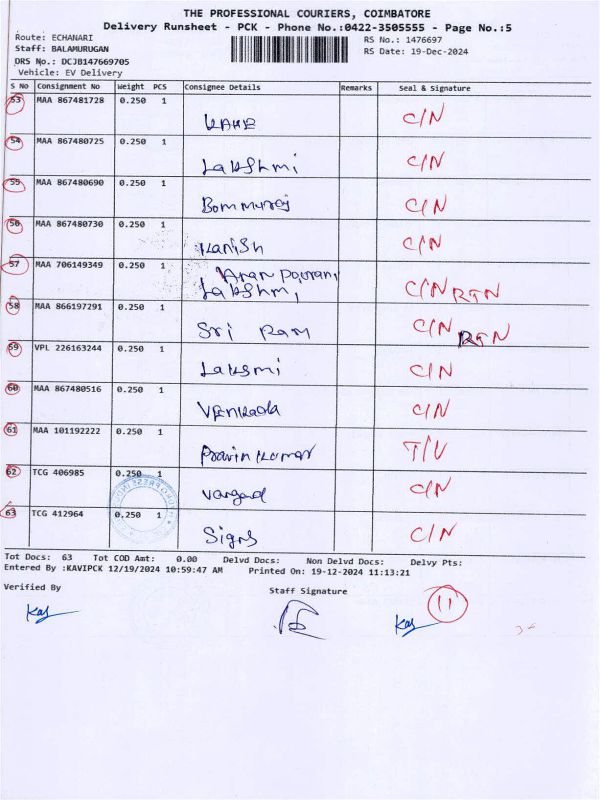 THE PROFESSIONAL COURIERS, COIMBATORE
Delivery Runsheet - PCK - Phone No.:0422-3505555 - Page No.:5
Route: ECHANARI RS No.: 1476697
Staff: BALAMURUGAN RS Date: 19-Dec-2024
DRS No.: DCJB147669705
Vehicle: EV Delivery
S No Consignment No Weight PCS Consignee Details Remarks Seal & Signature
53 MAA 867481728 0.250 1 C/N
54 MAA 867480725 0.250 1 Lakshmi C/N
55 MAA 867480690 0.250 1 Bommuraj C/N
56 MAA 867480730 0.250 1 Kanish C/N
57 MAA 706149349 0.250 1
Lakshmi C/N RTN
58 MAA 866197291 0.250 1 Sri Ram C/N RTN
59 VPL 226163244 0.250 1 Laksmi C/N
60 MAA 867480516 0.250 1 Venkada C/N
61 MAA 101192222 0.250 1 Pravin Kumar T/U
62 TCG 406985 0.250 1 C/N
63 TCG 412964 0.250 1 Signs C/N
Tot Docs: 63 Tot COD Amt: 0.00 Delvd Docs: Non Delvd Docs: Delvy Pts:
Entered By :KAVIPCK 12/19/2024 10:59:47 AM Printed On: 19-12-2024 11:13:21
Verified By Staff Signature
11